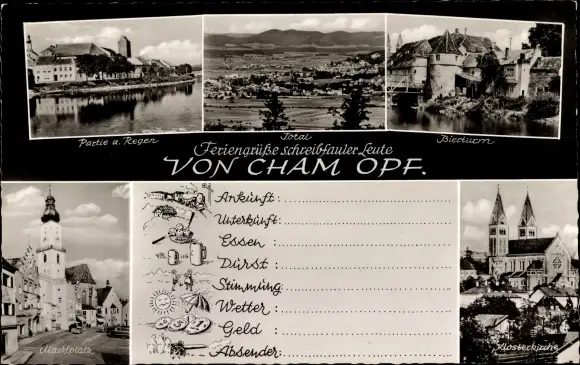 Partie a. Regen
Total
Bierturm
Feriengrüße schreibfauler Leute
VON CHAM OPF.
Ankunft:
Unterkunft:
Essen:
Durst:
Stimmung:
Wetter:
Geld:
Absender:
Marktplatz
Klosterkirche